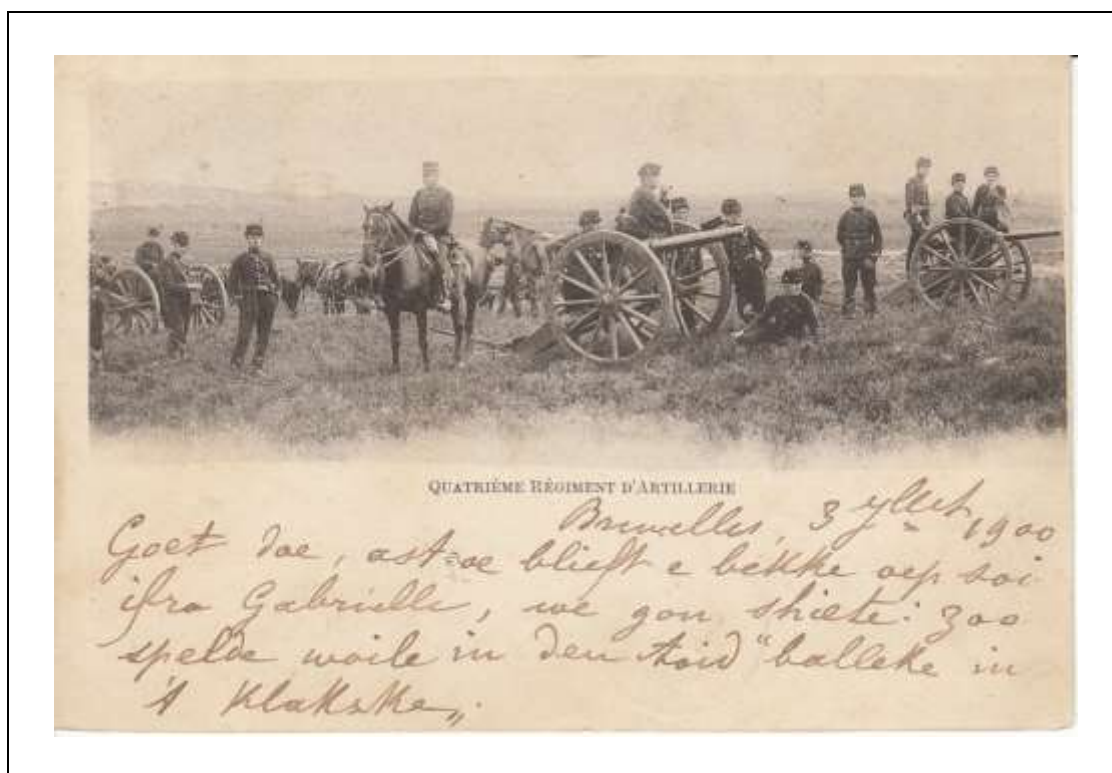 QUATRIÈME RÉGIMENT D'ARTILLERIE
Bruxelles, 3 yllet 1900
Goet doe, ast-oe blieft e bekke oep soi
ifra Gabrielle, we gon shiete: zoo
spelde woile in den toid "balleke in
't Klakske„.